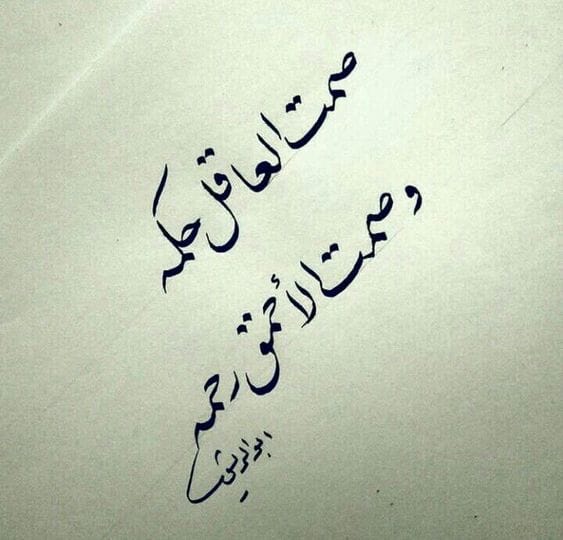 صمت العاقل حكمه
وصمت الأحمق رحمه